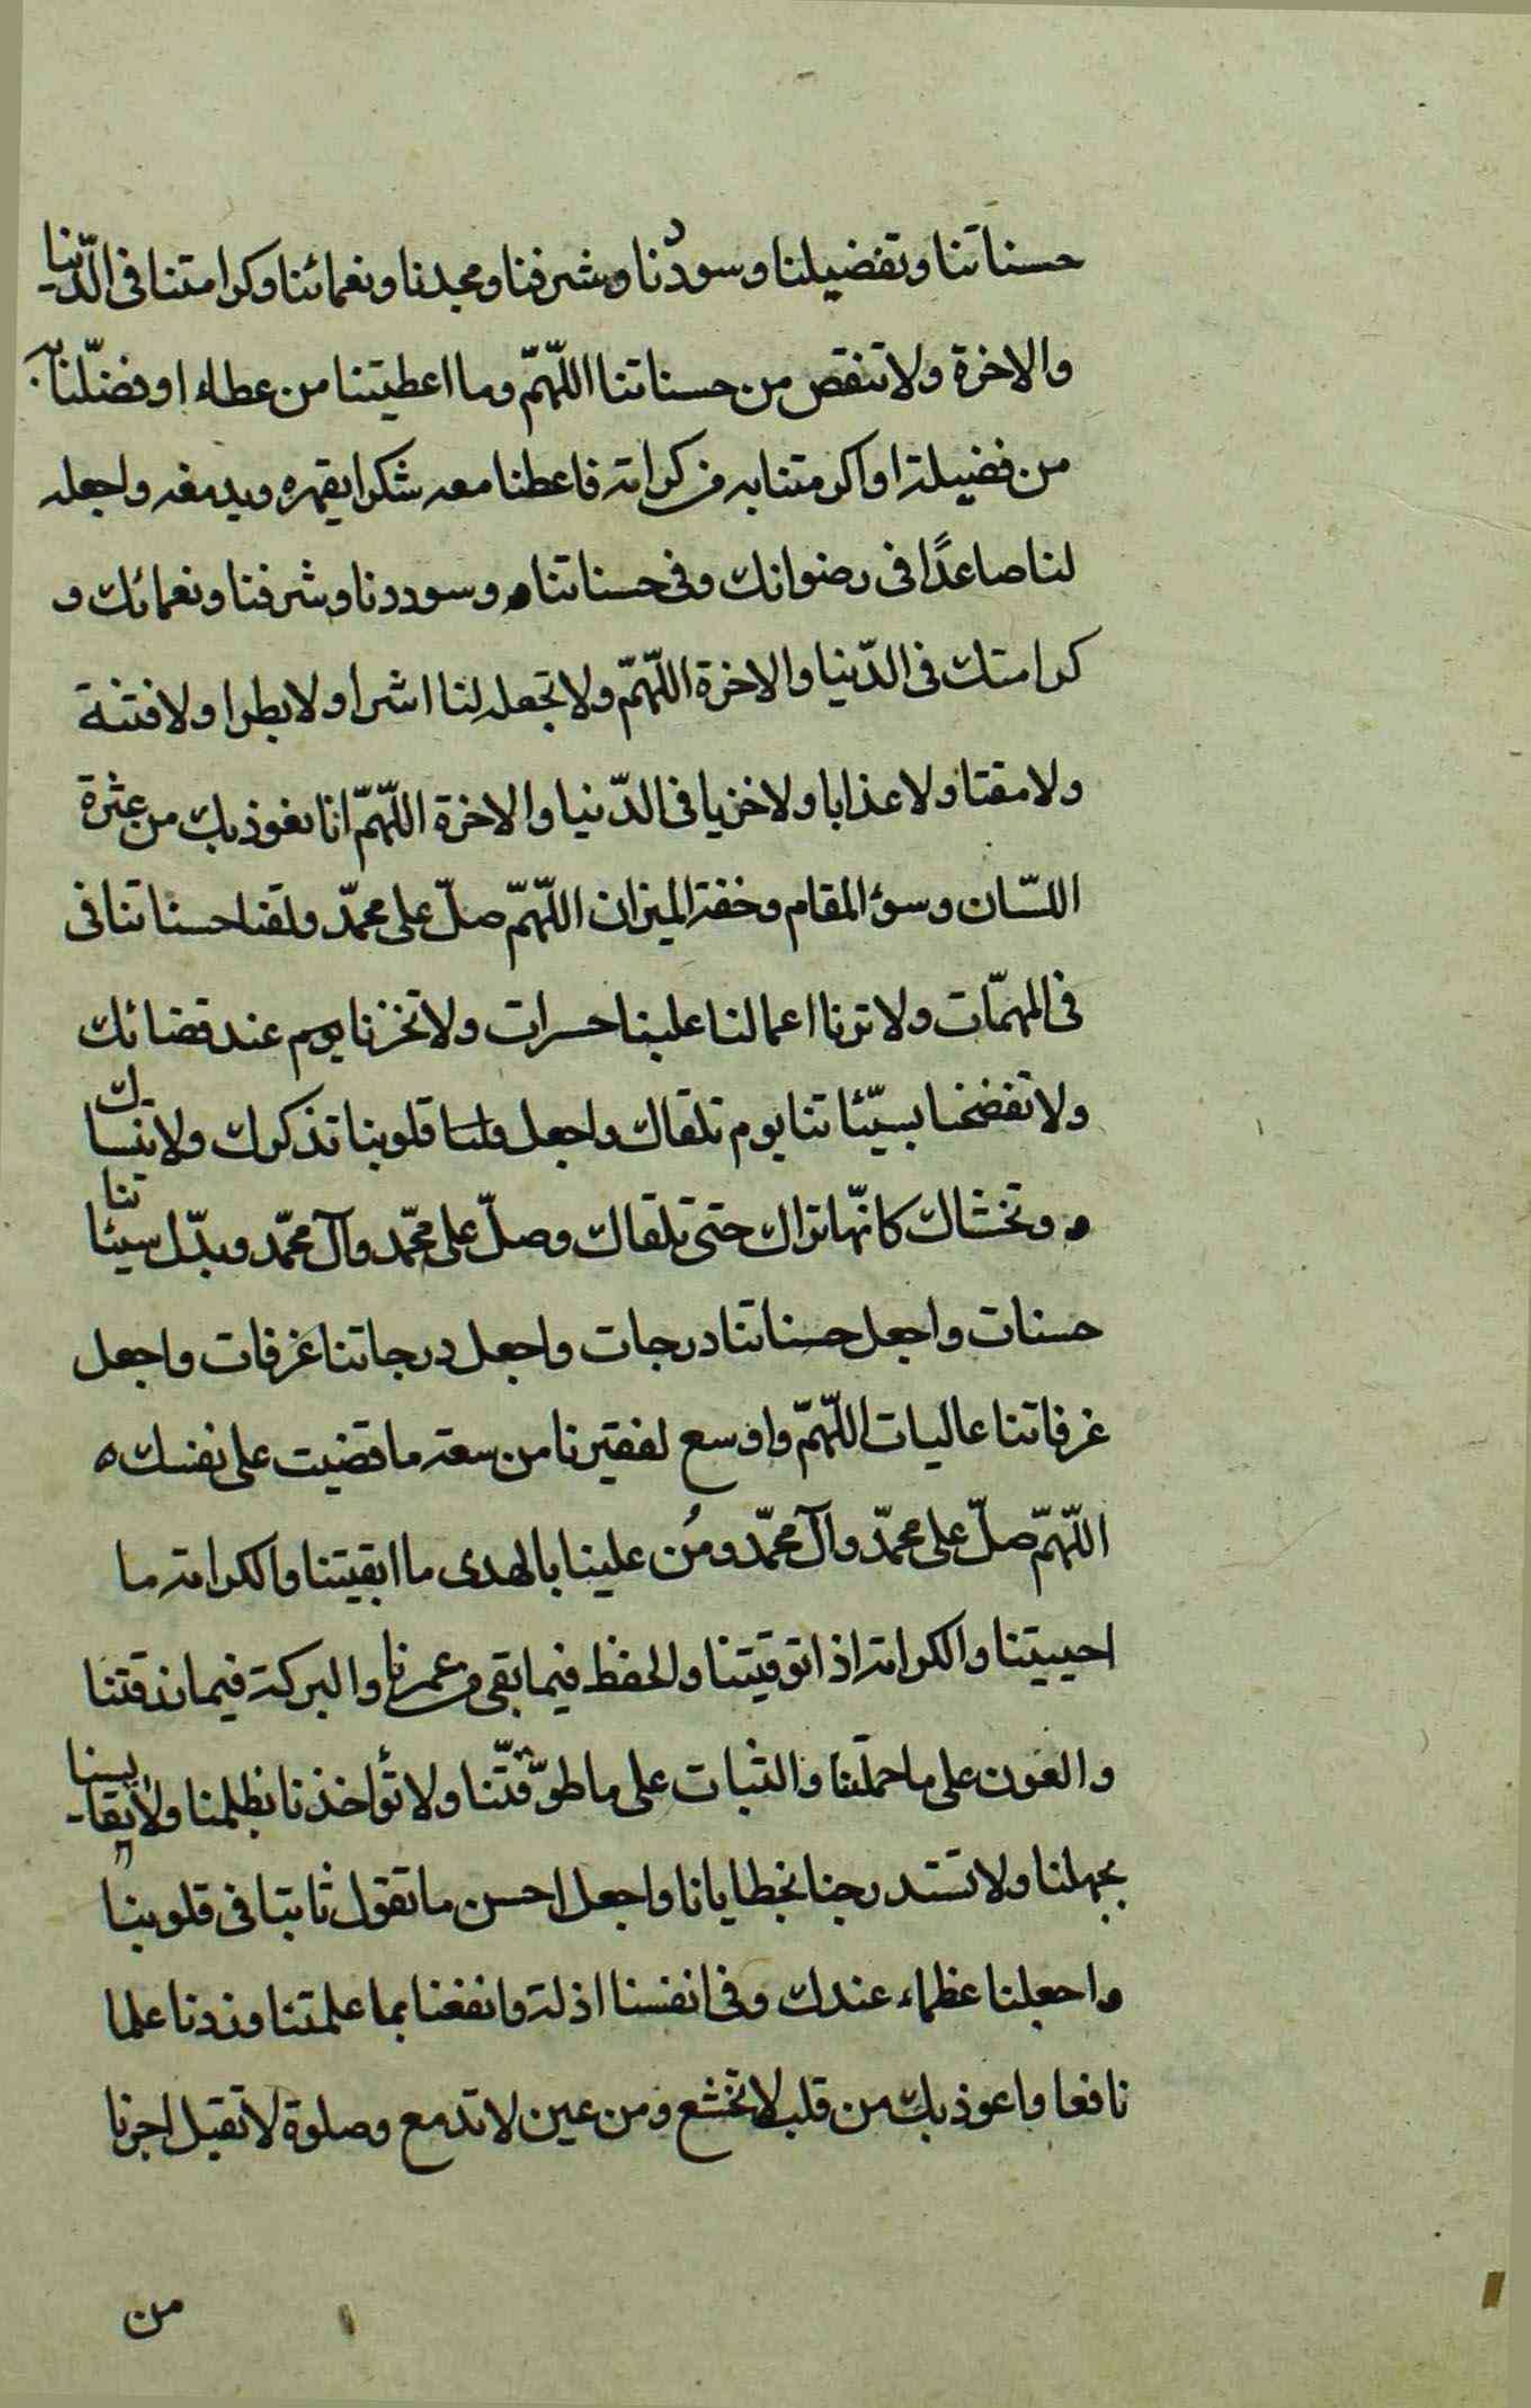 حسناتنا وتفضيلنا وسوددنا وشرفنا ومجدنا ونعمائنا وكرامتنا فى الدّنيا
والاخرة ولا تنقص من حسناتنا اللّهمّ وما اعطيتنا من عطاء او فضّلتنا به
من فضيلة او اكرمتنا به من كرامة فاعطنا معه شكرا يقهره ويدمغه واجعله
لنا صاعدًا فى رضوانك وفى حسناتنا وسوددنا وشرفنا ونعمائك و
كرامتك فى الدّنيا والاخرة اللّهمّ ولا تجعله لنا اشرا ولا بطرا ولا فتنة
ولا مقتا ولا عذابا ولا خزيا فى الدّنيا والاخرة اللّهمّ انا نعوذ بك من عثرة
اللسّان وسوء المقام وخفة الميزان اللّهمّ صلّ على محمّد ولقنا حسناتنا فى
فى المهمّات ولا ترنا اعمالنا علينا حسرات ولا تخزنا يوم عند قضائك
ولا تفضحنا بسيّئاتنا يوم نلقاك واجعل قلوبنا تذكرك ولا تنساك
وتخشاك كانّها تراك حتى تلقاك وصلّ على محمّد وآل محمّد وبدّل سيئاتنا
حسنات واجعل حسناتنا درجات واجعل درجاتنا غرفات واجعل
غرفاتنا عاليات اللّهمّ واوسع لفقيرنا من سعة ما قضيت على نفسك ه
اللّهمّ صلّ على محمّد وآل محمّد ومُن علينا بالهدى ما ابقيتنا والكرامة ما
احييتنا والكرامة اذا توفيتنا والحفظ فيما بقى من عمرنا والبركة فيما رزقتنا
والعون على ما حملتنا والثبات على ما طوّقتّنا ولا تؤاخذنا بظلمنا ولا تقايسنا
بجهلنا ولا تستدرجنا بخطايانا واجعل احسن ما نقول ثابتا فى قلوبنا
واجعلنا عظماء عندك وفى انفسنا اذلة وانفعنا بما علمتنا وزدنا علما
نافعا واعوذ بك من قلب لا تخشع ومن عين لا تدمع وصلوة لا تقبل اجرنا
من